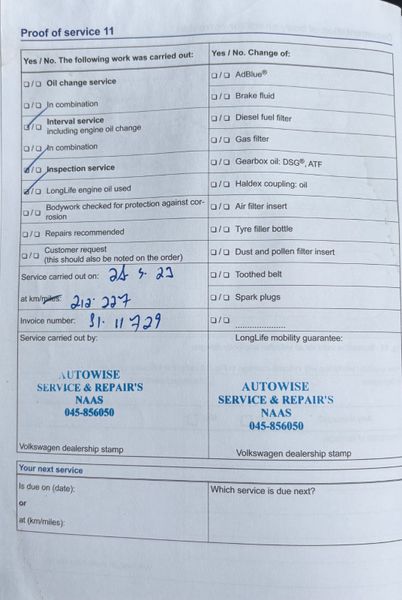 Proof of service 11
Yes / No. The following work was carried out:
❑ / ❑ Oil change service
❑ / ❑ In combination
❑ / ❑ Interval service
including engine oil change
❑ / ❑ In combination
❑ / ❑ Inspection service
❑ / ❑ LongLife engine oil used
❑ / ❑ Bodywork checked for protection against cor-
rosion
❑ / ❑ Repairs recommended
❑ / ❑ Customer request
(this should also be noted on the order)
Service carried out on:
at km/miles: 212.227
Invoice number:
Service carried out by:
AUTOWISE
SERVICE & REPAIR'S
NAAS
045-856050
Volkswagen dealership stamp
Yes / No. Change of:
❑ / ❑ AdBlue®
❑ / ❑ Brake fluid
❑ / ❑ Diesel fuel filter
❑ / ❑ Gas filter
❑ / ❑ Gearbox oil: DSG®, ATF
❑ / ❑ Haldex coupling: oil
❑ / ❑ Air filter insert
❑ / ❑ Tyre filler bottle
❑ / ❑ Dust and pollen filter insert
❑ / ❑ Toothed belt
❑ / ❑ Spark plugs
❑ / ❑ ......................
LongLife mobility guarantee:
AUTOWISE
SERVICE & REPAIR'S
NAAS
045-856050
Volkswagen dealership stamp
Your next service
Is due on (date):
or
at (km/miles):
Which service is due next?